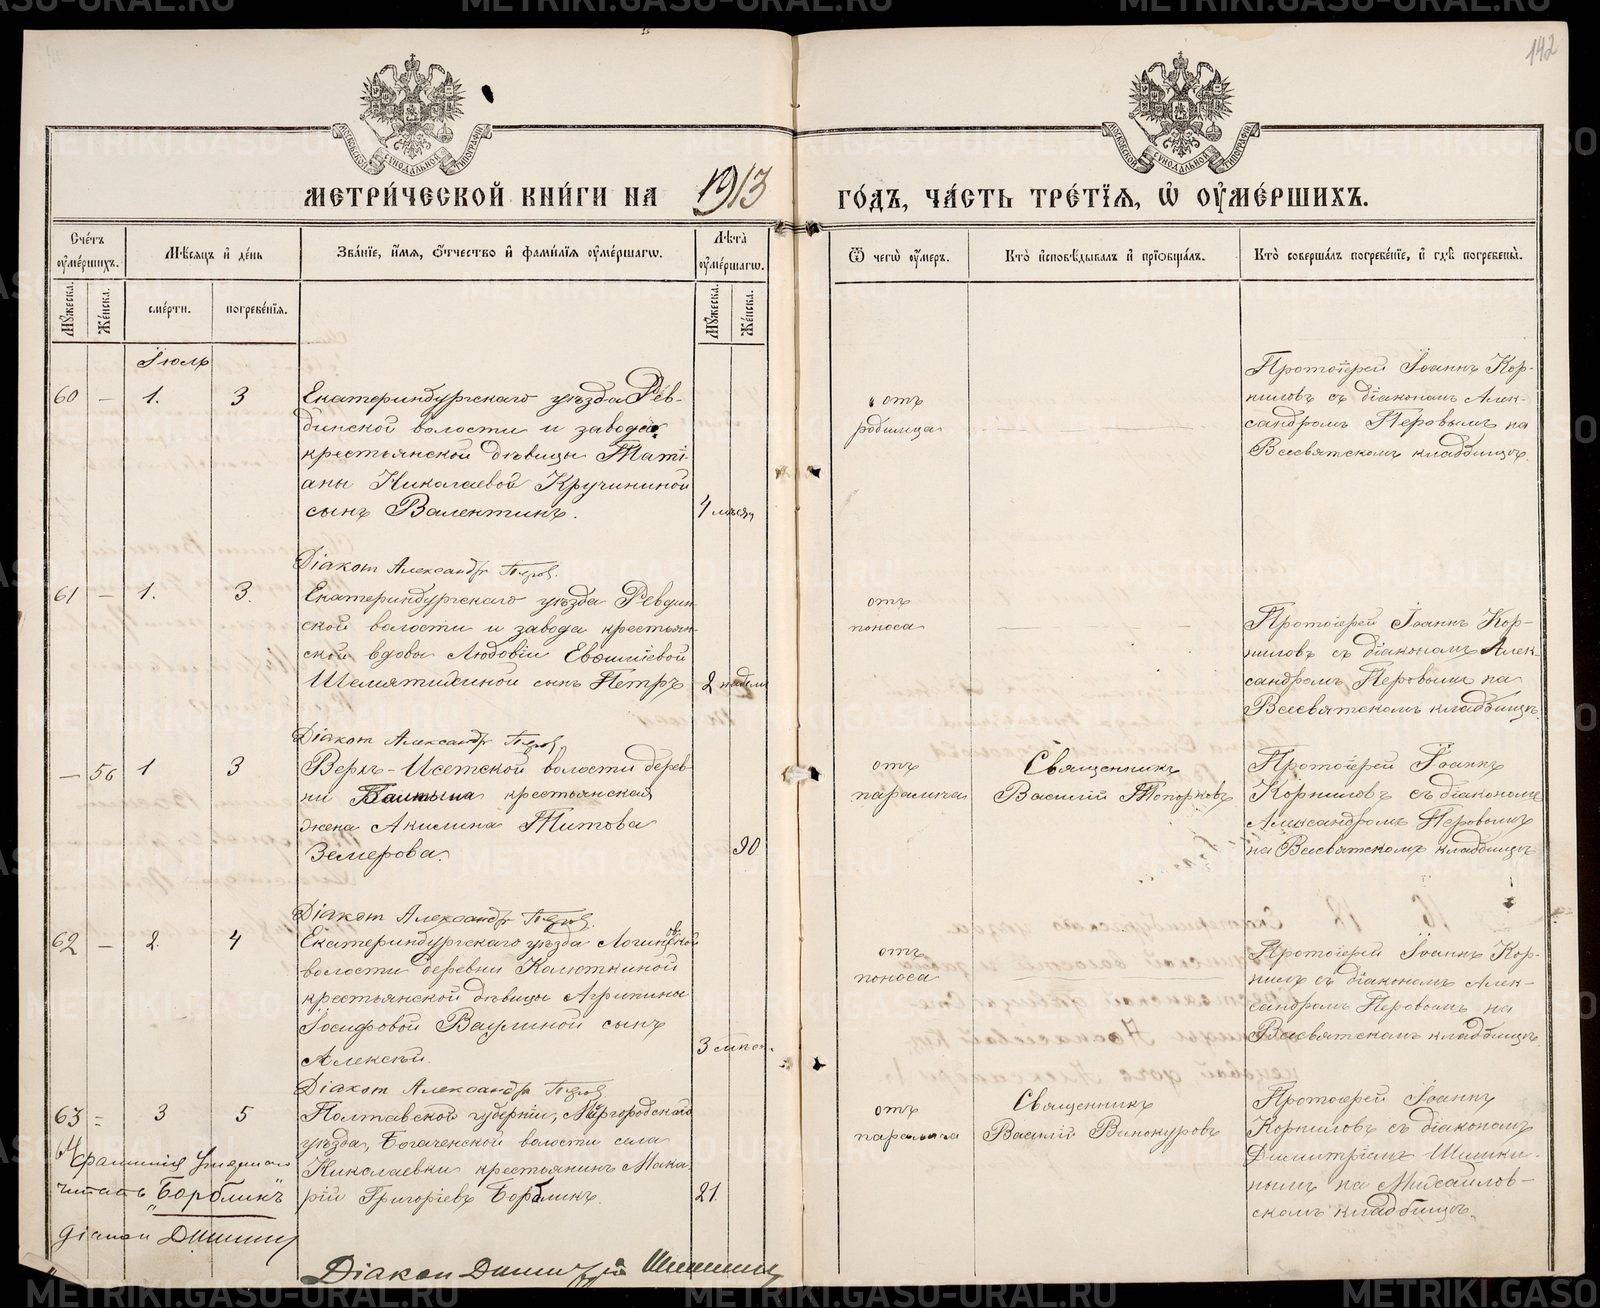 142
МОСКОВСКОЙ СѴНОДАЛЬНОЙ ТИПОГРАФІИ
МОСКОВСКОЙ СѴНОДАЛЬНОЙ ТИПОГРАФІИ
МЕТРИ́ЧЕСКОЙ КНИ́ГИ НА 1913 ГО́ДЪ, ЧА́СТЬ ТРЕ́ТІЯ, Ѡ҆ ОУ҆МЕ́РШИХЪ.
Сче́тъ оу҆ме́ршихъ.
Мѣ́сяцъ и҆ де́нь
Зва́ніе, и҆́мя, ѻ҆́тчество и҆ фами́лія оу҆ме́ршагѡ.
Лѣ́та оу҆ме́ршагѡ.
Ѿ чегѡ̀ оу҆́меръ.
Кто̀ и҆сповѣ́дывалъ и҆ прїѡбща́лъ.
Кто̀ соверша́лъ погребе́ніе, и҆ гдѣ̀ погребены̀.
Му́жеска.
Же́нска.
сме́рти.
погребе́нія.
Му́жеска.
Же́нска.
Іюль
60 — 1. 3
Екатеринбургскаго уѣзда Рев-
динской волости и завода
крестьянской дѣвицы Таті-
аны Николаевой Кручининой
сынъ Валентинъ.
4 мѣсяц
отъ
родимца
Протоіерей Іоаннъ Кор-
ниловъ съ діакономъ Алек-
сандромъ Перовымъ на
Всесвятскомъ кладбищѣ.
Діакон Александръ Перов.
61 — 1. 3.
Екатеринбургскаго уѣзда Ревдин-
ской волости и завода крестьян-
ской вдовы Любовіи
Шемятихиной сынъ Петръ
2 недѣли
отъ
поноса
Протоіерей Іоаннъ Кор-
ниловъ съ діакономъ Алек-
сандромъ Перовымъ на
Всесвятскомъ кладбищѣ.
Діакон Александръ Перов
— 56 1 3
Верхъ-Исетской волости дерев-
ни крестьянская
жена Акилина Титова
Земерова.
90
отъ
паралича
Священникъ
Василій Топорковъ
Протоіерей Іоаннъ
Корниловъ съ діакономъ
Александромъ Перовымъ
на Всесвятскомъ кладбищѣ
Діакон Александръ Перов.
62 — 2. 4
Екатеринбургскаго уѣзда Логиновской
волости деревни Колюткиной
крестьянской дѣвицы Агрипины
Іосифовой Ваулиной сынъ
Алексѣй.
3
отъ
поноса
Протоіерей Іоаннъ Кор-
ниловъ съ діакономъ Алек-
сандромъ Перовымъ на
Всесвятскомъ кладбищѣ.
Діакон Александръ Перов
63 = 3 5
Полтавской губерніи, Миргородскаго
уѣзда, Богаченской волости села
Николаевки крестьянинъ Мака-
рій Григоріевъ Борбликъ.
21.
отъ
паралича
Священникъ
Василій Винокуровъ
Протоіерей Іоаннъ
Корниловъ съ діакономъ
Димитріемъ Шишки-
нымъ на Михайлов-
скомъ кладбищѣ.
64
фамилія умершаго
читать „Борбликъ“
діакон Дишишин
Діакон Димитрій Шишкин
METRIKI.GASO-URAL.RU